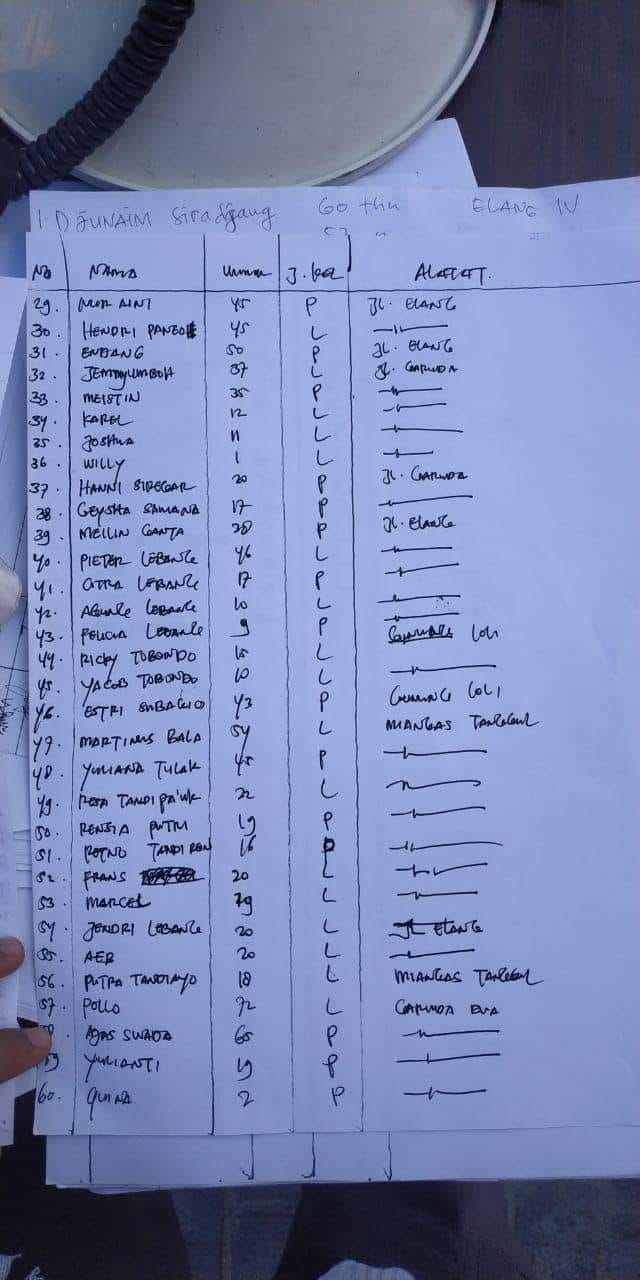 1. DJUNAIM Siradjang 60 thn ELANG IV
No NAMA Umur J. kel ALAMAT.
29. NUR AINI 45 P JL. ELANG
30. HENDRI 45 L —"—
31. ENDANG 50 P JL. ELANG
32. 37 L JL. GARUDA
33. MEISTIN 35 P —"—
34. KAREL 12 L —"—
35. JOSHUA 11 L —"—
36. WILLY 1 L —"—
37. HANNI SIREGAR 20 P JL. GARUDA
38. GEYSHA 17 P —"—
39. MEILIN 38 P JL. ELANG
40. PIETER LEBANGE 46 L —"—
41. CITRA LEBANGE 17 P —"—
42. LEBANGE 10 L —"—
43. FELICIA LEBANGE 9 P —"—
44. RICKY TOBONDO 15 L LOLI
45. YACOB TOBONDO 10 L —"—
46. ESTRI SUBAGIO 43 P GUNUNG LOLI
47. MARTINUS BALA 54 L MIANGAS TANGGUL
48. YULIANA TULAK 45 P —"—
49. TANDI PA'UK 22 L
50. RENSIA PUTRI 19 P —"—
51. RETNO TANDI 16 P —"—
52. FRANS 20 L —"—
53. MARCEL 29 L —"—
54. JENDRI LEBANGE 20 L JL ELANG
55. 20 L —"—
56. PUTRA TANDIAYO 18 L MIANGAS TANGGUL
57. POLLO 72 L GARUDA
65 P —"—
YULIANTI 19 P —"—
60. 2 P —"—